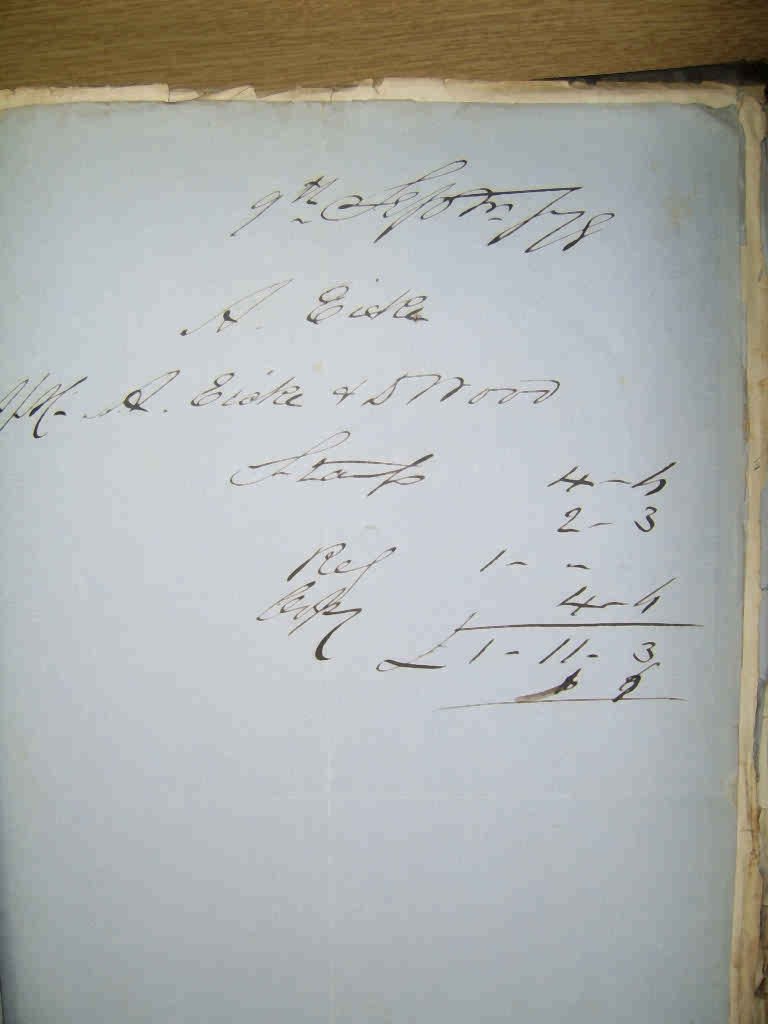 9th Septr /78
A. Eicke
A. Eicke & D Wood
Stamp 4 - 6
2 - 3
Reg 1 - -
Copy 4 - 6
£ 1 - 11 - 3